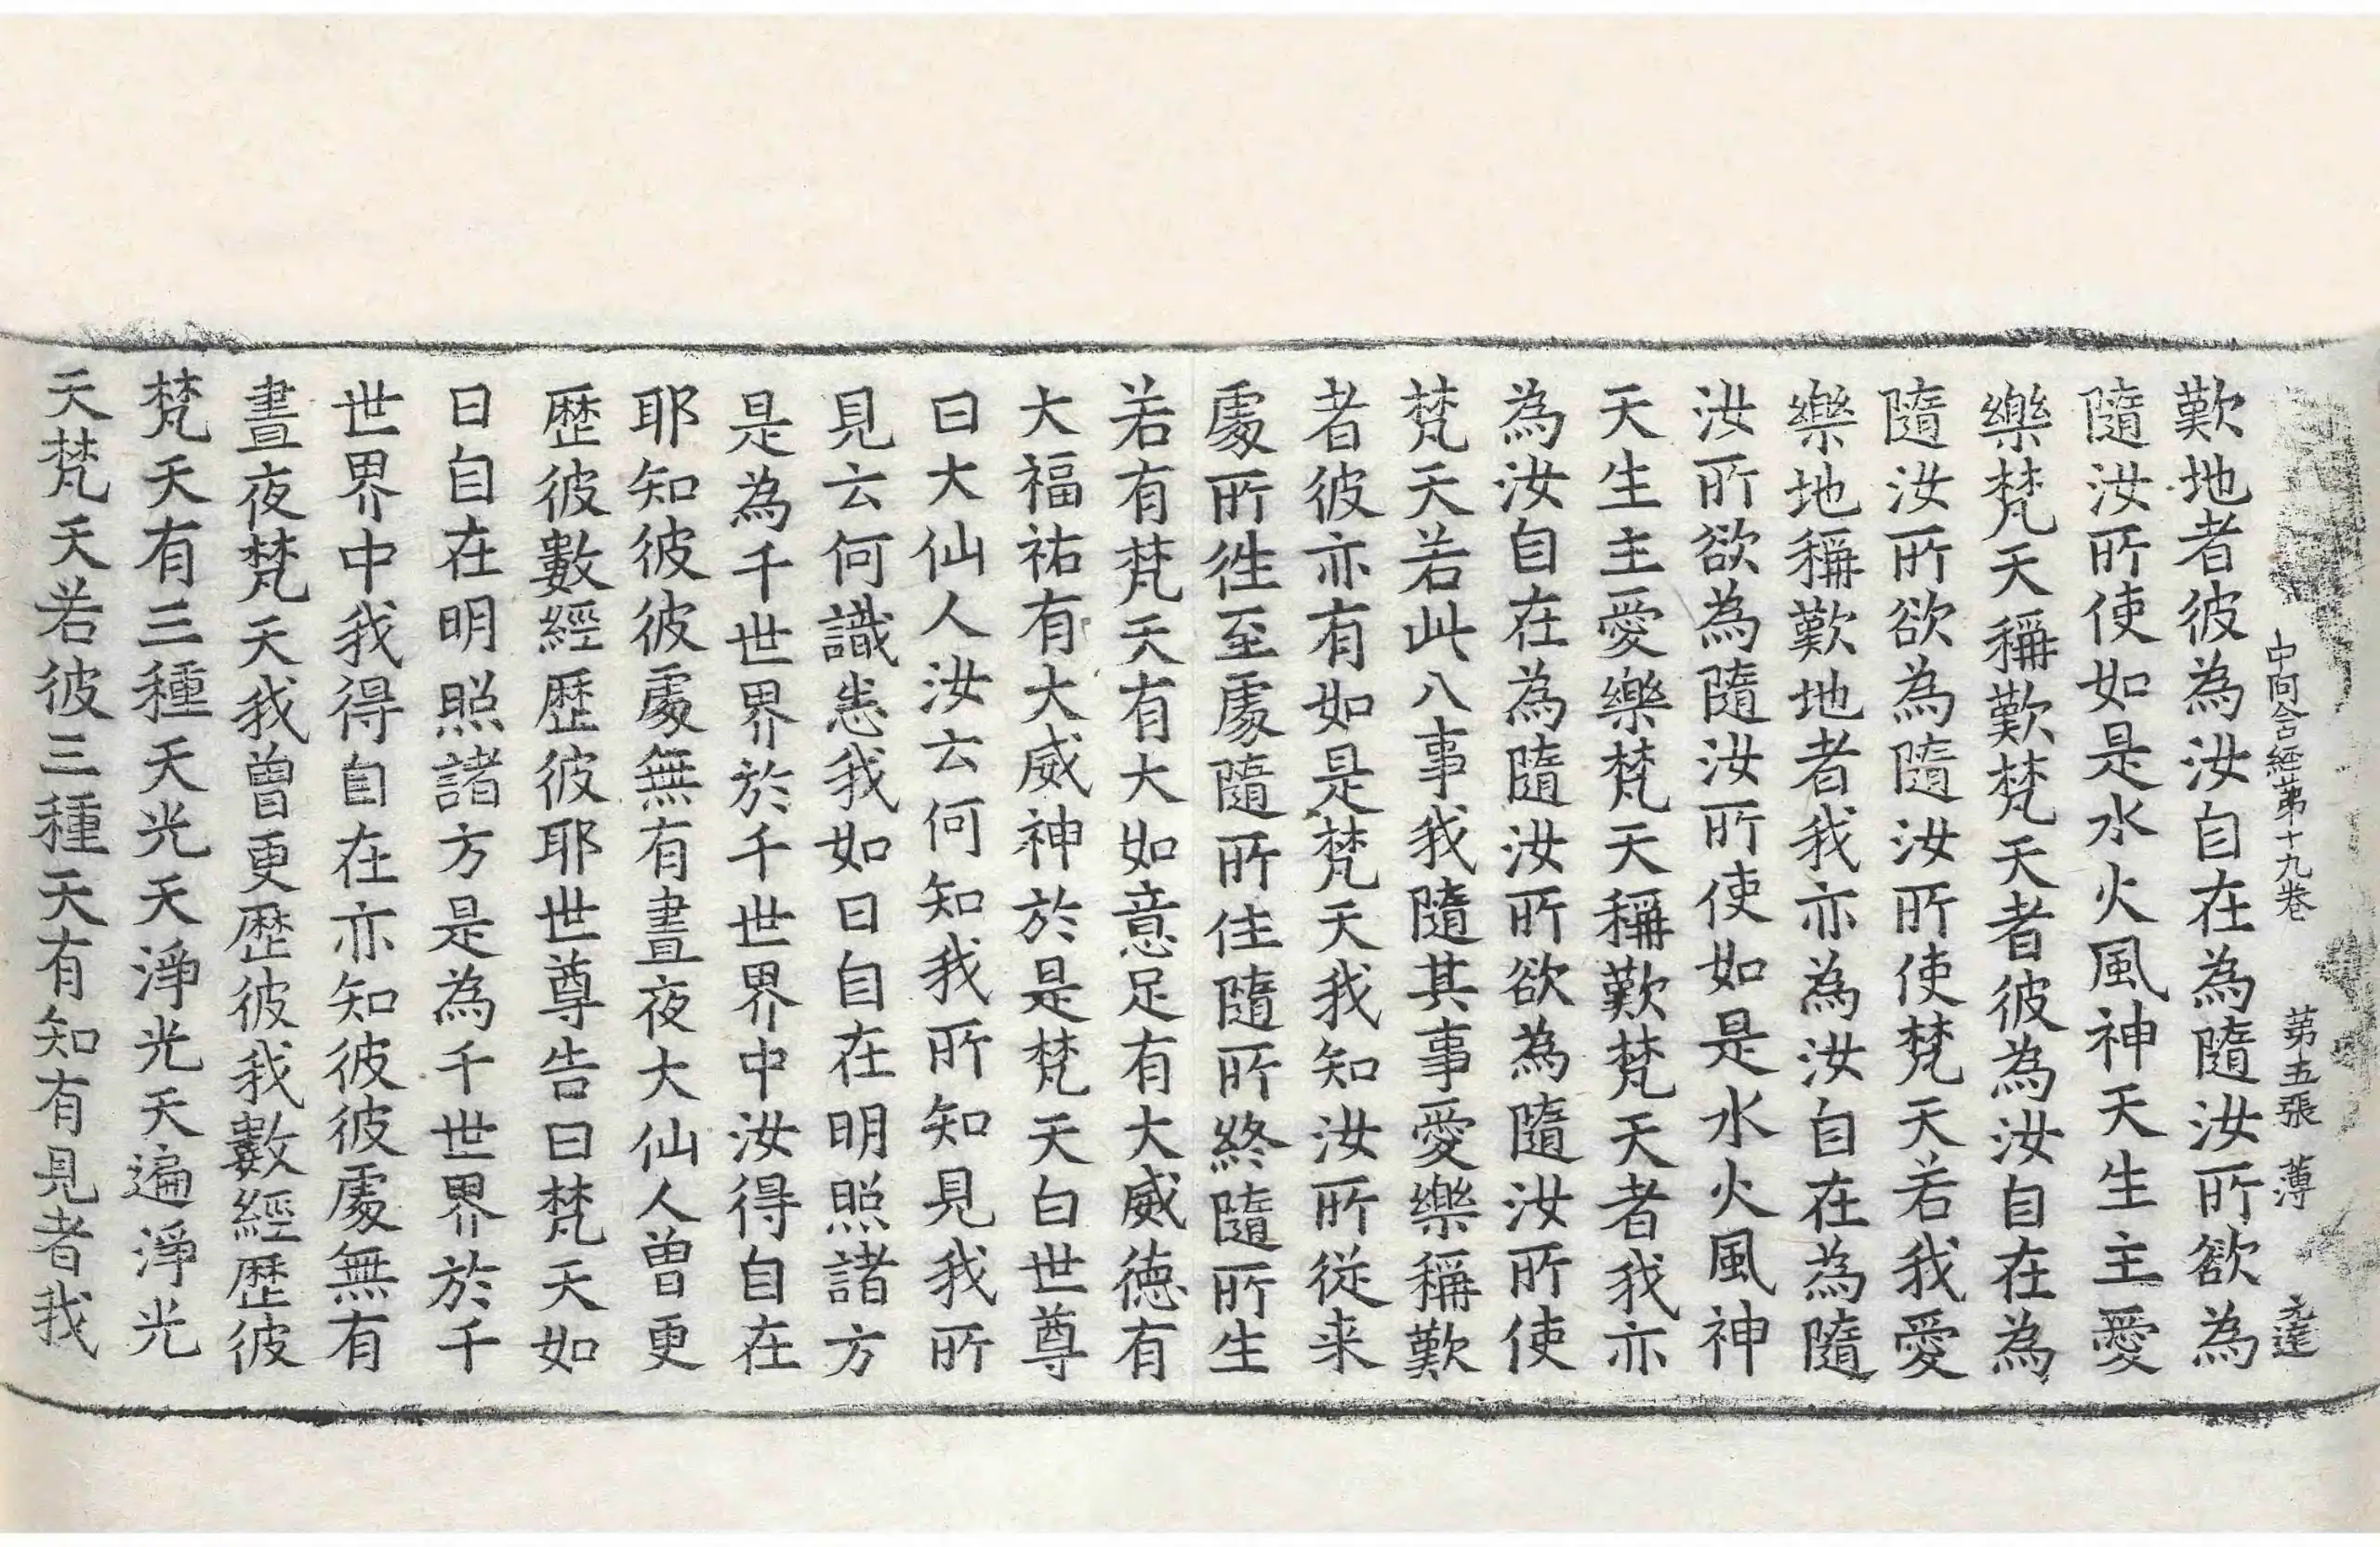 中阿含経苐十九巻 苐五張 薄 元達
歎地者彼為汝自在為隨汝所欲為
隨汝所使如是水火風神天生主愛
樂梵天稱歎梵天者彼為汝自在為
隨汝所欲為隨汝所使梵天若我愛
樂地稱歎地者我亦為汝自在為隨
汝所欲為隨汝所使如是水火風神
天生主愛樂梵天稱歎梵天者我亦
為汝自在為隨汝所欲為隨汝所使
梵天若此八事我隨其事愛樂稱歎
者彼亦有如是梵天我知汝所従来
處所徃至處隨所住隨所終隨所生
若有梵天有大如意足有大威徳有
大福祐有大威神於是梵天白世尊
曰大仙人汝云何知我所知見我所
見云何識恚我如日自在明照諸方
是為千世界於千世界中汝得自在
耶知彼彼處無有晝夜大仙人曾更
歷彼數經歷彼耶世尊告曰梵天如
日自在明照諸方是為千世界於千
世界中我得自在亦知彼彼處無有
晝夜梵天我曾更歷彼我數經歷彼
梵天有三種天光天淨光天遍淨光
天梵天若彼三種天有知有見者我